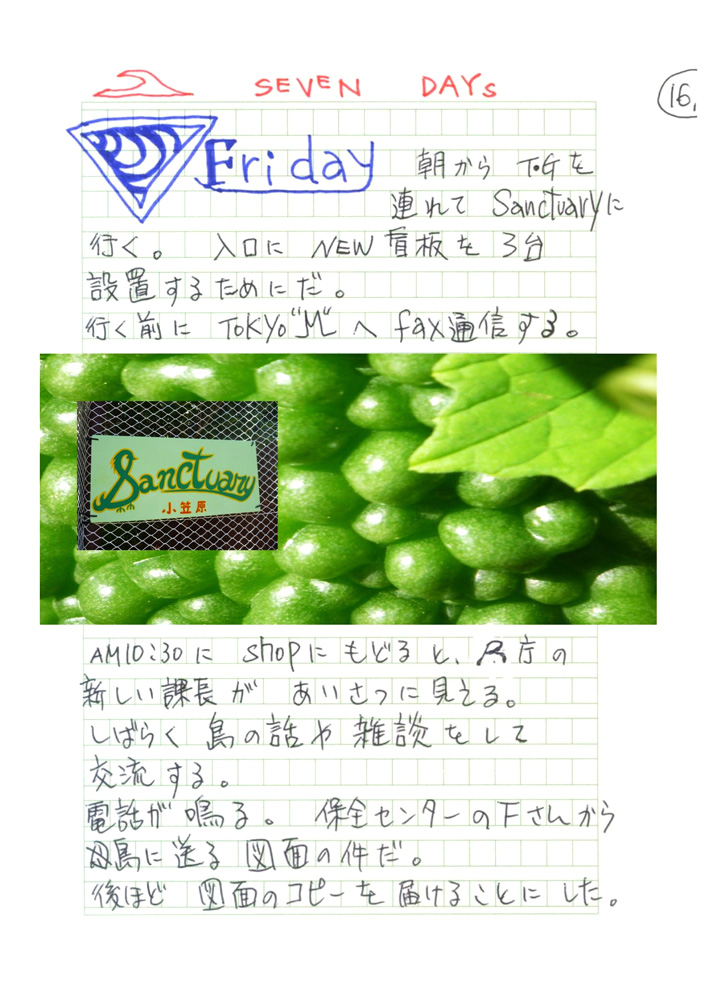 SEVEN DAYS
16.
Friday 朝から T.Gを
連れて Sanctuaryに
行く。 入口に NEW 看板を 3台
設置するためにだ。
行く前に TOKYO "M" へ fax通信する。
Sanctuary
小笠原
AM10:30に shopに もどると、 庁の
新しい課長が あいさつに見える。
しばらく 島の話や 雑談をして
交流する。
電話が 鳴る。 保全センターの下さんから
母島に送る 図面の件だ。
後ほど 図面のコピーを 届けることにした。